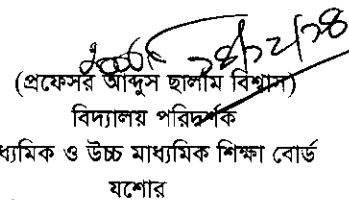 ১৪/১২/১৪
(প্রফেসর আব্দুস ছালাম বিশ্বাস)
বিদ্যালয় পরিদর্শক
ধ্যমিক ও উচ্চ মাধ্যমিক শিক্ষা বোর্ড
যশোর